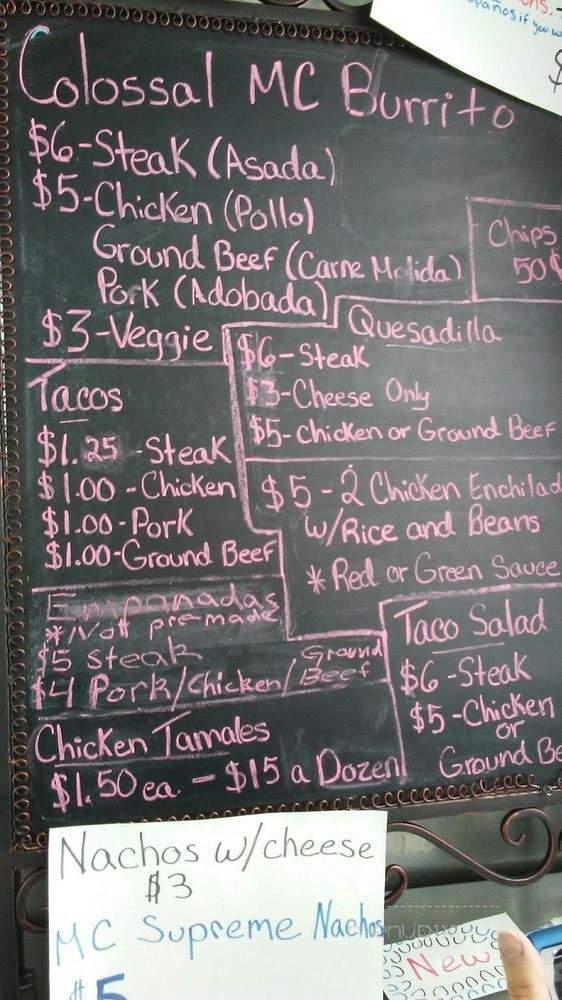 Colossal MC Burrito
$6-Steak (Asada)
$5-Chicken (Pollo)
Ground Beef (Carne Molida)
Pork (Adobada)
$3-Veggie
Chips
50¢
Quesadilla
$6-Steak
$3-Cheese Only
$5-Chicken or Ground Beef
Tacos
$1.25-Steak
$1.00-Chicken
$1.00-Pork
$1.00-Ground Beef
$5-2 Chicken Enchilad
w/Rice and Beans
*Red or Green Sauce
Empanadas
*Not premade
$5 Steak
$4 Pork/Chicken/Ground Beef
Taco Salad
$6-Steak
$5-Chicken
or
Ground Be
Chicken Tamales
$1.50 ea. - $15 a Dozen
Nachos w/cheese
$3
MC Supreme Nachos
$5
New